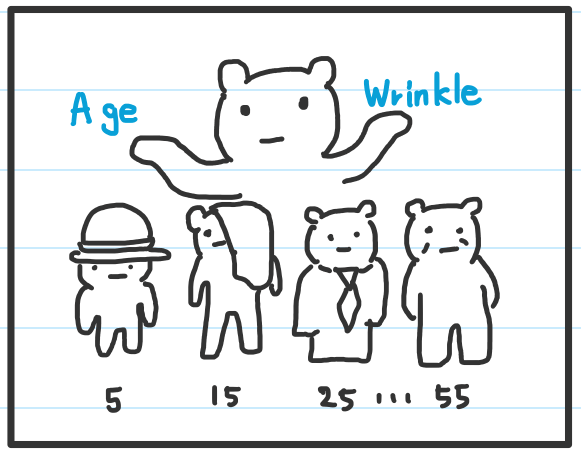 Age
Wrinkle
5 15 25 ... 55